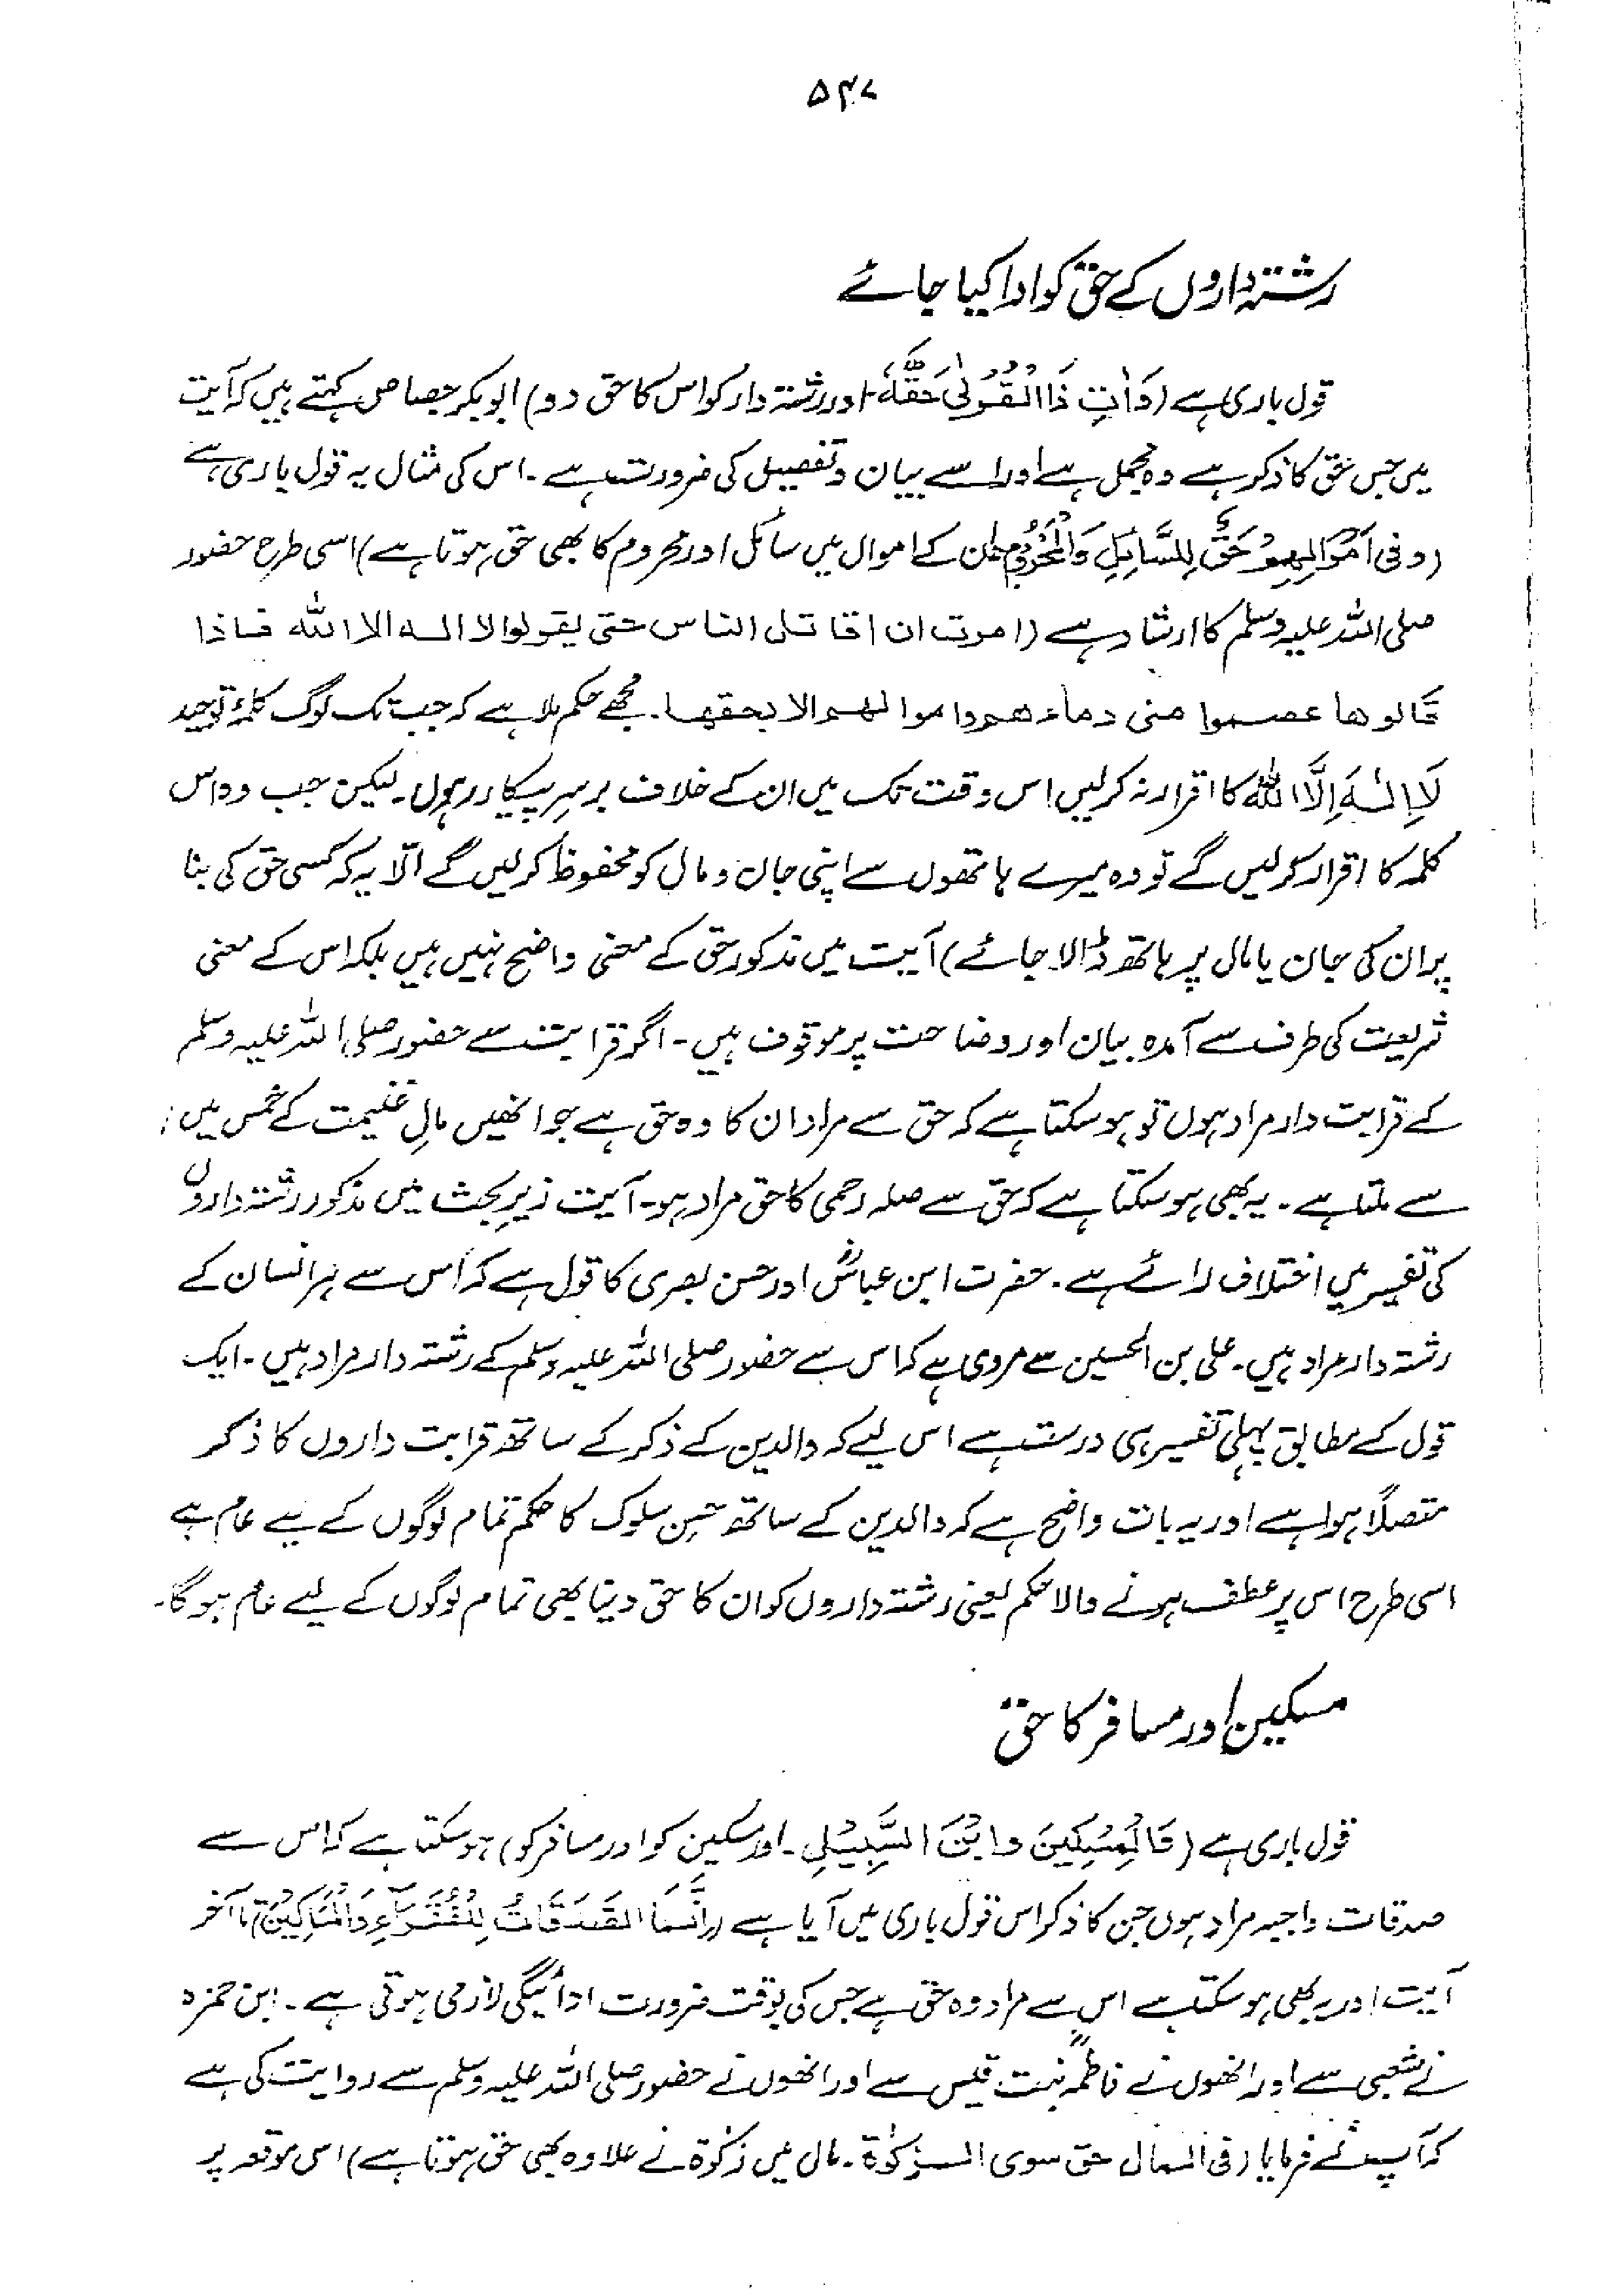 ۵۴۷
رشتہ داروں کے حق کو ادا کیا جائے
قول باری ہے (وَاٰتِ ذَا الْقُرْبٰی حَقَّہٗ۔ اور رشتہ دار کو اس کا حق دو) ابوبکر جصاص کہتے ہیں کہ آیت
میں جس حق کا ذکر ہے وہ مجمل ہے اور اسے بیان و تفصیل کی ضرورت ہے۔ اس کی مثال یہ قول باری ہے
(وفی اَمْوَالِہِمْ حَقٌّ لِلسَّائِلِ وَالْمَحْرُوْمِ ان کے اموال میں سائل اور محروم کا بھی حق ہوتا ہے) اسی طرح حضور
صلی اللہ علیہ وسلم کا ارشاد ہے (امرت ان اقاتل الناس حتی یقولوا لا الہ الا اللہ فاذا
قالوھا عصموا منی دماءھم واموالھم الا بحقھا۔ مجھے حکم ملا ہے کہ جب تک لوگ کلمۂ توحید
لَا اِلٰہَ اِلَّا اللہ کا اقرار نہ کرلیں اس وقت تک میں ان کے خلاف برسرِپیکار رہوں۔ لیکن جب وہ اس
کلمہ کا اقرار کرلیں گے تو وہ میرے ہاتھوں سے اپنی جان و مال کو محفوظ کرلیں گے الّا یہ کہ کسی حق کی بنا
پر ان کی جان یا مال پر ہاتھ ڈالا جائے) آیت میں مذکور حق کے معنی واضح نہیں ہیں بلکہ اس کے معنی
شریعت کی طرف سے آمدہ بیان اور وضاحت پر موقوف ہیں۔ اگر قرابت سے حضور صلی اللہ علیہ وسلم
کے قرابت دار مراد ہوں تو ہوسکتا ہے کہ حق سے مراد ان کا وہ حق ہے جو انھیں مالِ غنیمت کے خمس میں
سے ملتا ہے۔ یہ بھی ہوسکتا ہے کہ حق سے صلہ رحمی کا حق مراد ہو۔ آیت زیرِ بحث میں مذکور رشتہ داروں
کی تفسیر میں اختلاف رائے ہے۔ حضرت ابن عباسؓ اور حسن بصری کا قول ہے کہ اس سے ہر انسان کے
رشتہ دار مراد ہیں۔ علی بن الحسین سے مروی ہے کہ اس سے حضور صلی اللہ علیہ وسلم کے رشتہ دار مراد ہیں۔ ایک
قول کے مطابق پہلی تفسیر ہی درست ہے اس لیے کہ والدین کے ذکر کے ساتھ قرابت داروں کا ذکر
متصلاً ہوا ہے اور یہ بات واضح ہے کہ والدین کے ساتھ حسنِ سلوک کا حکم تمام لوگوں کے لیے عام ہے
اسی طرح اس پر عطف ہونے والا حکم یعنی رشتہ داروں کو ان کا حق دینا بھی تمام لوگوں کے لیے عام ہوگا۔
مسکین اور مسافر کا حق
قول باری ہے (وَالْمِسْکِیْنَ وابْنَ السَّبِیْلِ۔ اور مسکین کو اور مسافر کو) ہوسکتا ہے کہ اس سے
صدقات واجبہ مراد ہوں جن کا ذکر اس قول باری میں آیا ہے (اِنَّمَا الصَّدَقَاتُ لِلْفُقَرَآءِ وَالْمَسَاکِیْنِ) تا آخر
آیت اور یہ بھی ہوسکتا ہے اس سے مراد وہ حق ہے جس کی بوقت ضرورت ادائیگی لازمی ہوتی ہے۔ ابن حمزہ
نے شعبی سے اور انھوں نے فاطمہؓ بنت قیس سے اور انھوں نے حضور صلی اللہ علیہ وسلم سے روایت کی ہے
کہ آپؐ نے فرمایا (فی المال حق سوی الزکوٰۃ۔ مال میں زکوٰۃ نے علاوہ بھی حق ہوتا ہے) اس موقعہ پر